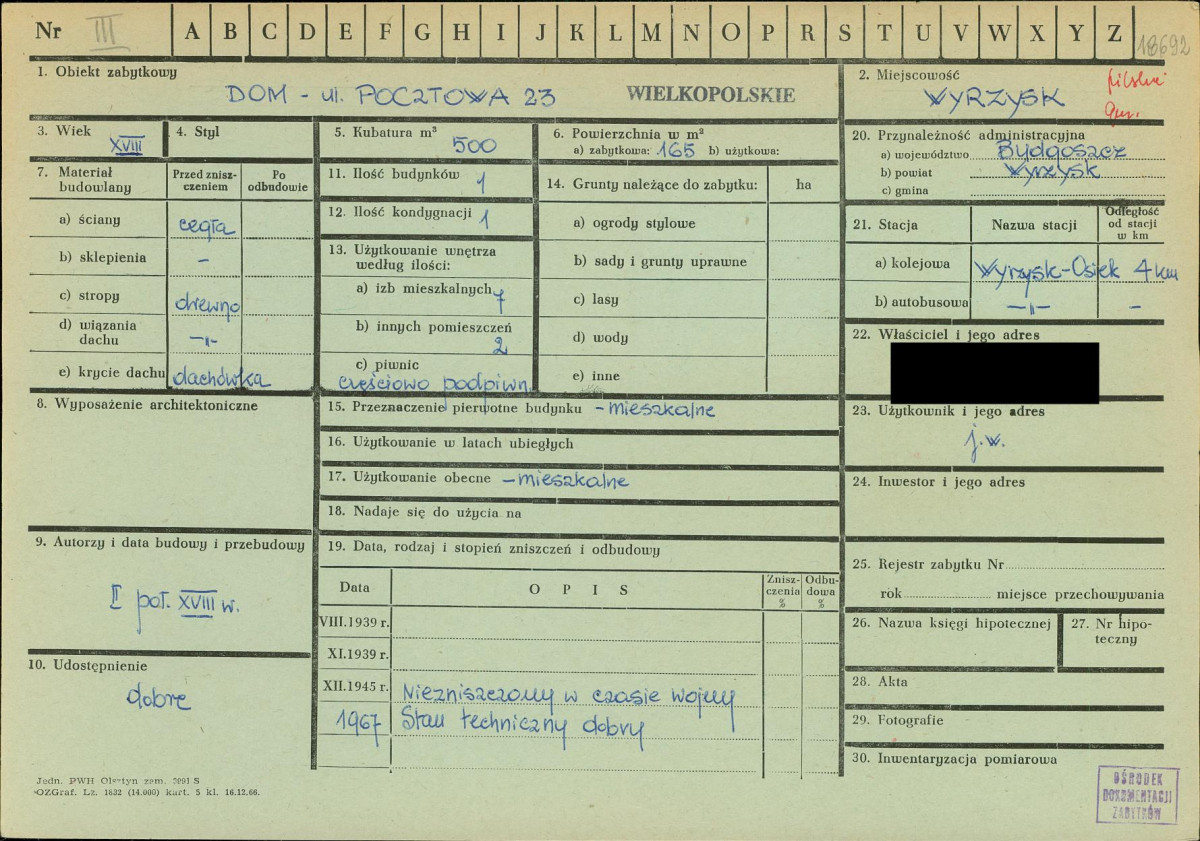 Nr III A B C D E F G H I J K L M N O P R S T U V W X Y Z 18692
1. Obiekt zabytkowy
DOM - ul. POCZTOWA 23 WIELKOPOLSKIE
2. Miejscowość
WYRZYSK
pilskie
3. Wiek
XVIII
4. Styl
5. Kubatura m³
500
6. Powierzchnia w m²
a) zabytkowa: 165 b) użytkowa:
7. Materiał budowlany
Przed zniszczeniem
Po odbudowie
a) ściany cegła
b) sklepienia -
c) stropy drewno
d) wiązania dachu -"-
e) krycie dachu dachówka
11. Ilość budynków 1
12. Ilość kondygnacji 1
13. Użytkowanie wnętrza
według ilości:
a) izb mieszkalnych 7
b) innych pomieszczeń
2
c) piwnic
częściowo podpiwn.
14. Grunty należące do zabytku: ha
a) ogrody stylowe
b) sady i grunty uprawne
c) lasy
d) wody
e) inne
8. Wyposażenie architektoniczne
9. Autorzy i data budowy i przebudowy
II poł. XVIII w.
10. Udostępnienie
dobre
15. Przeznaczenie pierwotne budynku - mieszkalne
16. Użytkowanie w latach ubiegłych
17. Użytkowanie obecne - mieszkalne
18. Nadaje się do użycia na
19. Data, rodzaj i stopień zniszczeń i odbudowy
Data OPIS Zniszczenia % Odbudowa %
VIII.1939 r.
XI.1939 r.
XII.1945 r. Niezniszczony w czasie wojny
1967 Stan techniczny dobry
20. Przynależność administracyjna
a) województwo Bydgoszcz
b) powiat Wyrzysk
c) gmina
21. Stacja Nazwa stacji Odległość od stacji w km
a) kolejowa Wyrzysk-Osiek 4 km
b) autobusowa -"- -
22. Właściciel i jego adres
23. Użytkownik i jego adres
j.w.
24. Inwestor i jego adres
25. Rejestr zabytku Nr
rok miejsce przechowywania
26. Nazwa księgi hipotecznej
27. Nr hipoteczny
28. Akta
29. Fotografie
30. Inwentaryzacja pomiarowa
Jedn. PWH Olsztyn zam. 3991 S
OZGraf. Lz. 1832 (14.000) kart. 5 kl. 16.12.66.
OŚRODEK
DOKUMENTACJI
ZABYTKÓW